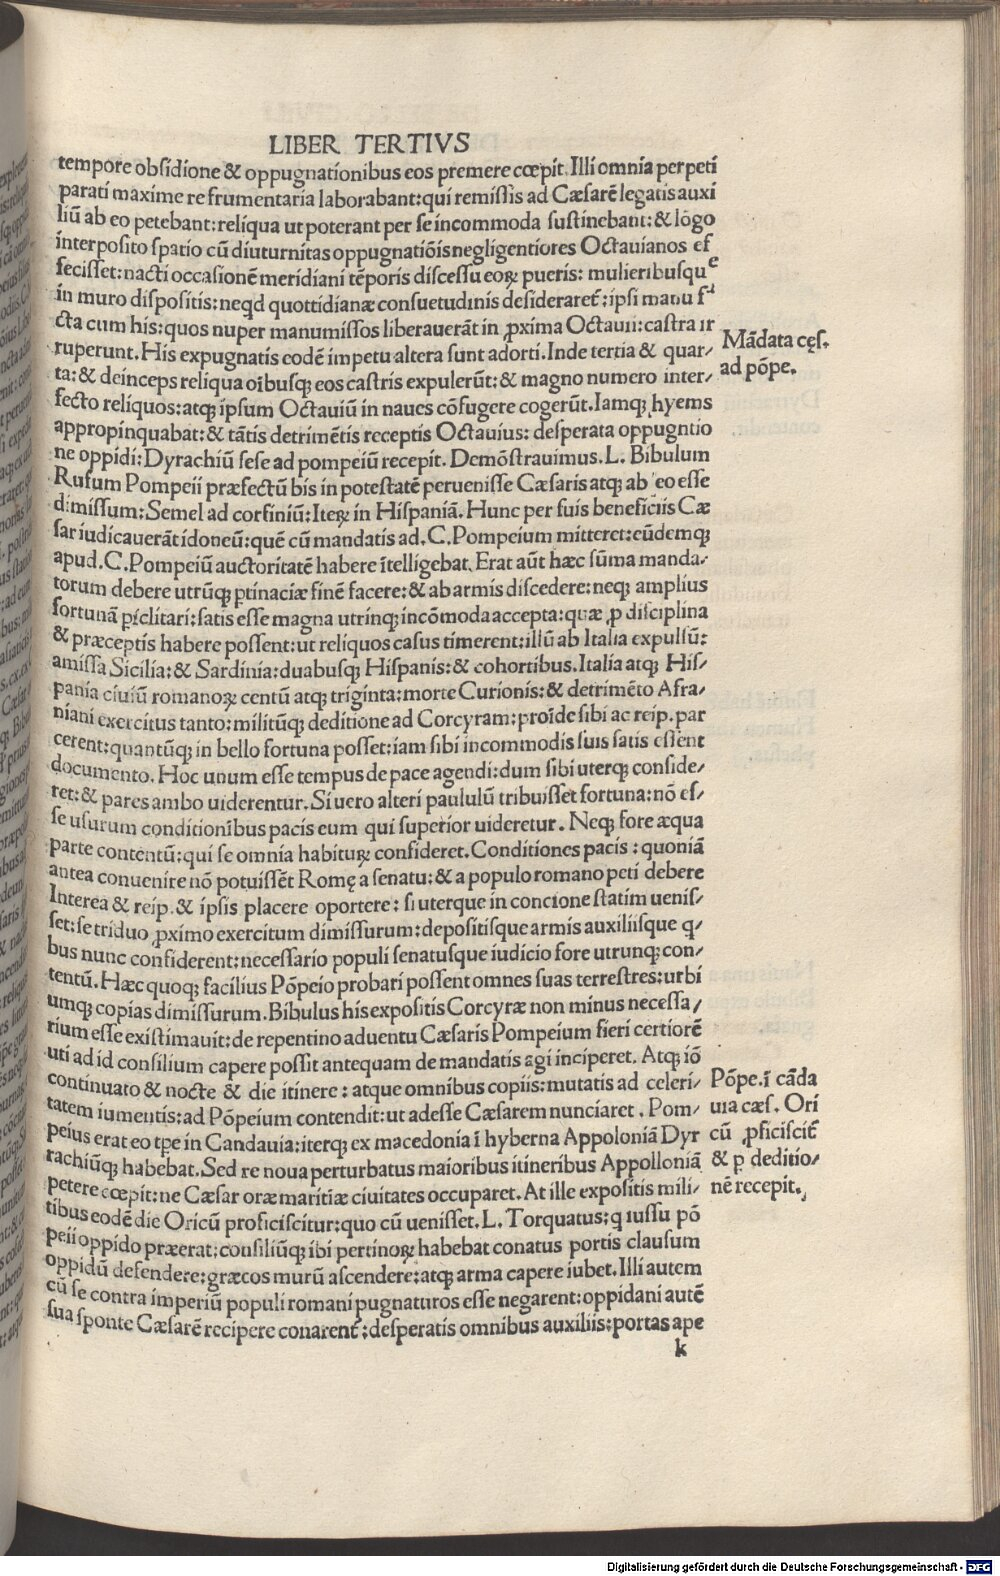 LIBER TERTIVS
tempore obsidione & oppugnationibus eos premere cœpit. Illi omnia perpeti
parati maxime re frumentaria laborabant: qui remissis ad Cæsarē legatis auxi
liū ab eo petebant: reliqua ut poterant per se incommoda sustinebant: & lōgo
interposito spatio cū diuturnitas oppugnatiōis negligentiores Octauianos ef
fecisset: nacti occasionē meridiani tēporis discessu eoꝝ pueris: mulieribusque
in muro dispositis: neqd quottidianæ consuetudinis desideraret᷑: ipsi manu f
cta cum his: quos nuper manumissos liberauerāt in ꝓxima Octauii: castra ir
ruperunt. His expugnatis eodē impetu altera sunt adorti. Inde tertia & quar-
ta: & deinceps reliqua oībusqꝫ eos castris expulerūt: & magno numero inter-
fecto reliquos: atqꝫ ipsum Octauiū in naues cōfugere cogerūt. Iamqꝫ hyems
appropinquabat: & tātis detrimētis receptis Octauius: desperata oppugntio
ne oppidi: Dyrachiū sese ad pompeiū recepit. Demōstrauimus. L. Bibulum
Rufum Pompeii præfectū bis in potestatē peruenisse Cæsaris atqꝫ ab eo esse
dimissum: Semel ad corfiniū: Iteꝝ in Hispaniā. Hunc per suis beneficiis Cæ
sar iudicauerāt idoneū: quē cū mandatis ad. C. Pompeium mitteret: eūdemqꝫ
apud. C. Pompeiū auctoritatē habere ītelligebat. Erat aūt hæc sūma manda-
torum debere utrūqꝫ ꝑtinaciæ finē facere: & ab armis discedere: neqꝫ amplius
fortunā ꝑiclitari: satis esse magna utrinqꝫ incōmoda accepta: quæ ꝓ disciplina
& præceptis habere possent: ut reliquos casus timerent: illū ab Italia expulsū:
amissa Sicilia: & Sardinia: duabusqꝫ Hispanis: & cohortibus. Italia atqꝫ His-
pania ciuiū romanoꝝ centū atqꝫ triginta: morte Curionis: & detrimēto Afra-
niani exercitus tanto: militūqꝫ deditione ad Corcyram: proīde sibi ac reip. par
cerent: quantūqꝫ in bello fortuna posset: iam sibi incommodis suis satis essent
documento. Hoc unum esse tempus de pace agendi: dum sibi uterqꝫ confide-
ret: & pares ambo uiderentur. Si uero alteri paululū tribuisset fortuna: nō es-
se usurum conditionibus pacis eum qui superior uideretur. Neqꝫ fore æqua
parte contentū: qui se omnia habituꝝ confideret. Conditiones pacis: quoniā
antea conuenire nō potuissēt Romę a senatu: & a populo romano peti debere
Interea & reip. & ipsis placere oportere: si uterque in concione statim uenis-
set: se triduo ꝓximo exercitum dimissurum: depositisque armis auxiliisque q-
bus nunc confiderent: necessario populi senatusque iudicio fore utrunqꝫ con-
tentū. Hæc quoqꝫ facilius Pōpeio probari possent omnes suas terrestres: urbi
umqꝫ copias dimissurum. Bibulus his expositis Corcyræ non minus necessa-
rium esse existimauit: de repentino aduentu Cæsaris Pompeium fieri certiorē
uti ad id consilium capere possit antequam de mandatis agi inciperet. Atqꝫ iō
continuato & nocte & die itinere: atque omnibus copiis: mutatis ad celeri-
tatem iumentis: ad Pōpeium contendit: ut adesse Cæsarem nunciaret. Pom-
peius erat eo tꝑe in Candauia: iterqꝫ ex macedonia ī hyberna Appoloniā Dyr
rachiūqꝫ habebat. Sed re noua perturbatus maioribus itineribus Appolloniā
petere cœpit: ne Cæsar oræ maritiæ ciuitates occuparet. At ille expositis mili-
tibus eodē die Oricū proficiscitur: quo cū uenisset. L. Torquatus: q iussu pō
peii oppido præerat: consiliūqꝫ ibi pertinoꝝ habebat conatus portis clausum
oppidū defendere: græcos murū ascendere: atqꝫ arma capere iubet. Illi autem
cū se contra imperiū populi romani pugnaturos esse negarent: oppidani autē
sua sponte Cæsarē recipere conarent᷑: desperatis omnibus auxiliis: portas ape
k
Mādata cęs.
ad pōpe.
Pōpe. ī cāda
uia cæs. Ori
cū ꝓficiscit᷑
& p deditio-
nē recepit.
Digitalisierung gefördert durch die Deutsche Forschungsgemeinschaft - DFG